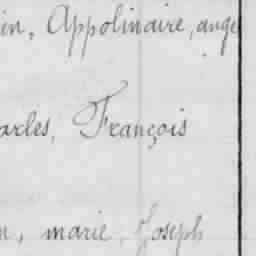 in, Appolinaire, ange
arles, François
n, marie, Joseph